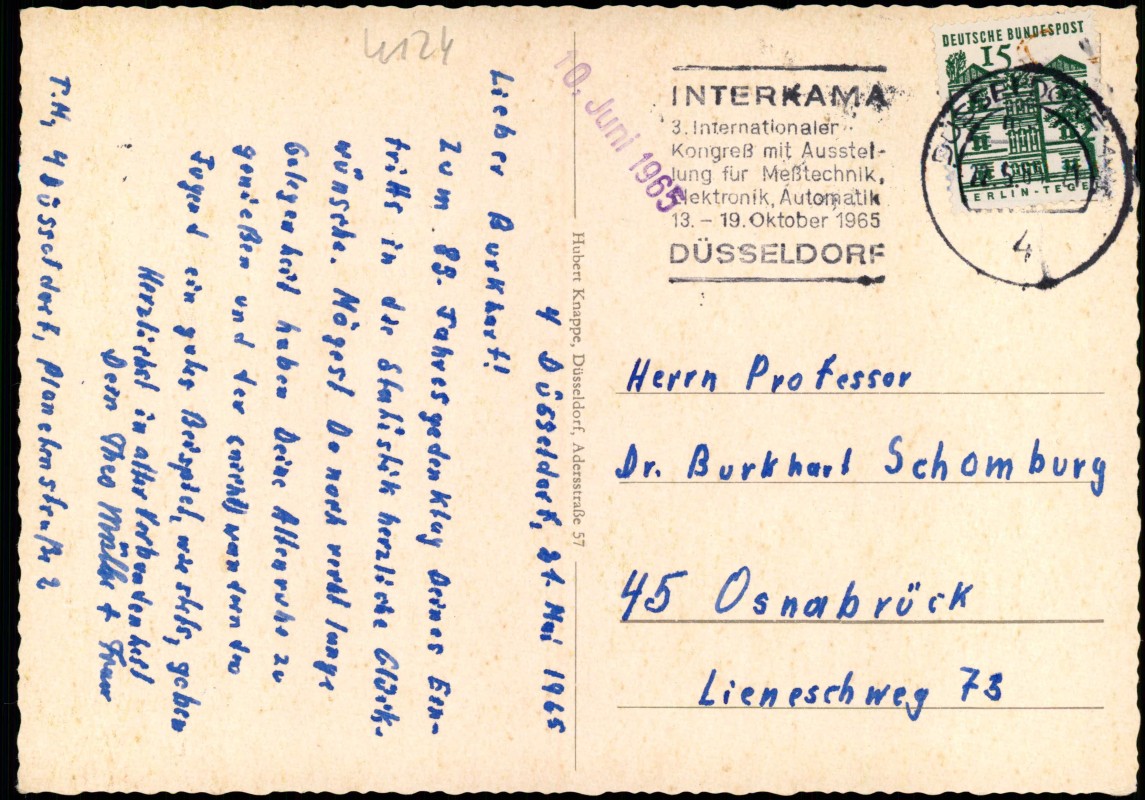 4 Düsseldorf, 31. Mai 1965
Lieber Burkhart!
Zum 88. Jahresgedenktag Deines Ein-
tritts in die Statistik herzliche Glück-
wünsche. Mögest Du noch recht lange
Gelegenheit haben Deine Altersruhe zu
genießen und der
Jugend ein gutes Beispiel, wie stets, geben
Herzlichst in alter Verbundenheit
Dein Theo + Frau
T.M, 4 Düsseldorf, Planckenstraße 2
4124
10. Juni 1965
Hubert Knappe, Düsseldorf, Adersstraße 57
INTERKAMA
3. Internationaler
Kongreß mit Ausstel-
lung für Meßtechnik,
Elektronik, Automatik
13. – 19. Oktober 1965
DÜSSELDORF
DEUTSCHE BUNDESPOST
15
BERLIN-TEGEL
DÜSSELDORF
4
Herrn Professor
Dr. Burkhart Schomburg
45 Osnabrück
Lieneschweg 73